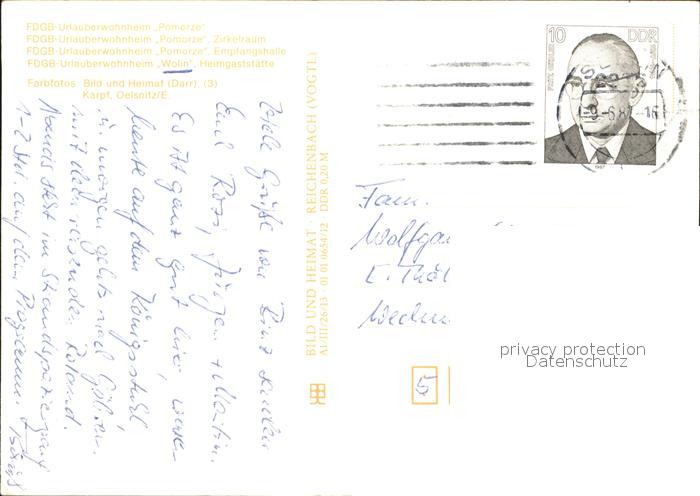 FDGB-Urlauberwohnheim „Pomorze“
FDGB-Urlauberwohnheim „Pomorze“, Zirkelraum
FDGB-Urlauberwohnheim „Pomorze“, Empfangshalle
FDGB-Urlauberwohnheim „Wolin“, Heimgaststätte
Farbfotos: Bild und Heimat (Darr), (3)
Karpf, Oelsnitz/E.
Viele Grüße von Binz senden
Rosi, Jürgen + Martin.
Es ist ganz gut hier, waren
heute auf dem Königsstuhl
u. morgen gehts nach Göhren
mit dem rasenden Roland.
Abends steht im Strandspaziergang
1-2 Std. auf dem Programm.
BILD UND HEIMAT · REICHENBACH (VOGTL)
A1/III/26/13 01 01 0654/12 DDR 0,20 M
10 DDR
1987
Fam.
Wolfga
5
privacy protection
Datenschutz